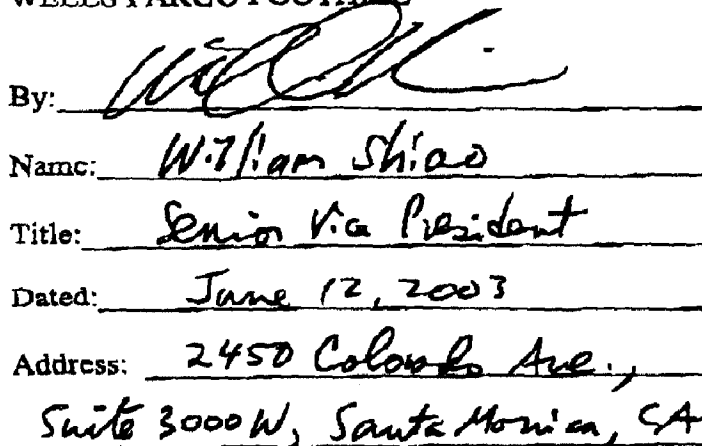 WELLS FARGO FOOTHILL
By:
Name: William Shiao
Title: Senior Vice President
Dated: June 12, 2003
Address: 2450 Colorado Ave.,
Suite 3000W, Santa Monica, CA